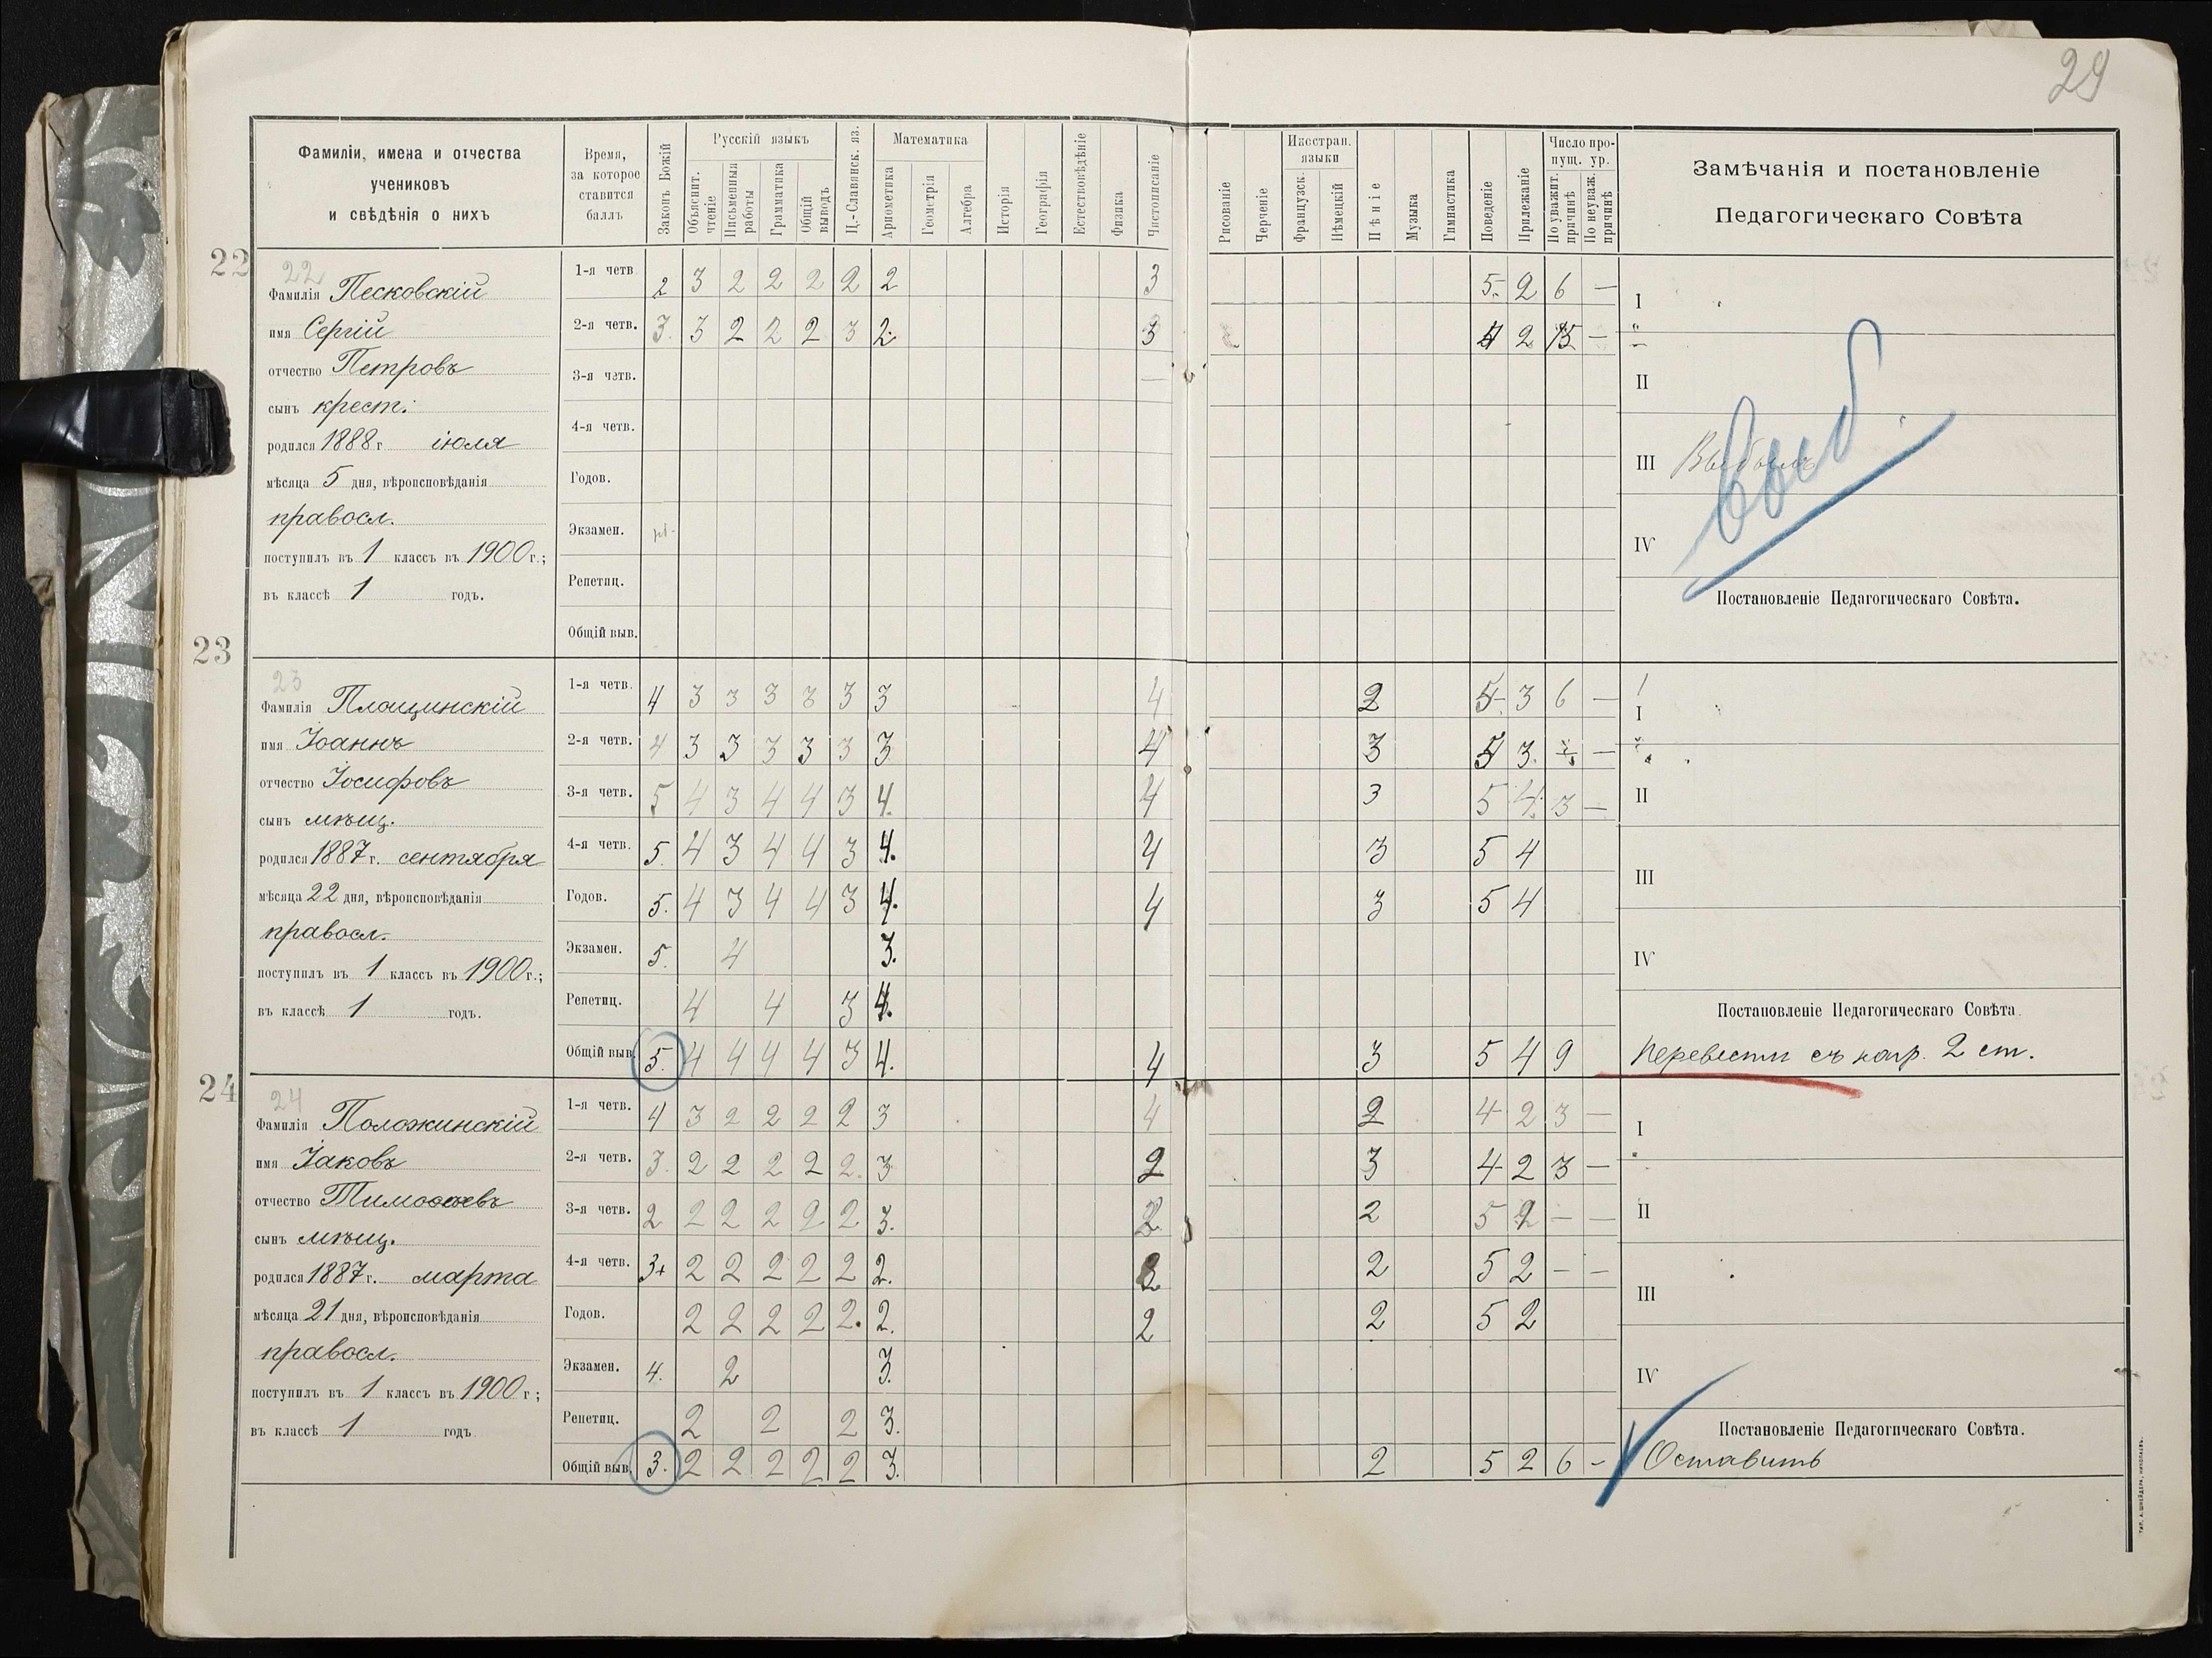 29
Фамиліи, имена и отчества
учениковъ
и свѣдѣнія о нихъ
Время,
за которое
ставится
баллъ
Законъ Божій
Русскій языкъ
Объяснит. чтеніе
Письменныя работы
Грамматика
Общій выводъ
Ц.-Славянск. яз.
Математика
Ариѳметика
Геометрія
Алгебра
Исторія
Географія
Естествовѣдѣніе
Физика
Чистописаніе
Рисованіе
Черченіе
Иностран. языки
Французск.
Нѣмецкій
Пѣніе
Музыка
Гимнастика
Поведеніе
Прилежаніе
Число пропущ. ур.
По уважит. причинѣ
По неуваж. причинѣ
Замѣчанія и постановленіе
Педагогическаго Совѣта
22
22
Фамилія Песковскій
имя Сергій
отчество Петровъ
сынъ крест.
родился 1888 г. іюля
мѣсяца 5 дня, вѣроисповѣданія
правосл.
поступилъ въ 1 классъ въ 1900 г.;
въ классѣ 1 годъ.
1-я четв. 2 3 2 2 2 2 2 3 5 2 6 —
2-я четв. 3 3 2 2 2 3 2 3 4 2 15 —
3-я четв.
4-я четв.
Годов.
Экзамен.
Репетиц.
Общій выв.
I
II
III Выбылъ
выб
IV
Постановленіе Педагогическаго Совѣта.
23
23
Фамилія Площинскій
имя Іоаннъ
отчество Іосифовъ
сынъ мѣщ.
родился 1887 г. сентября
мѣсяца 22 дня, вѣроисповѣданія
правосл.
поступилъ въ 1 классъ въ 1900 г.;
въ классѣ 1 годъ.
1-я четв. 4 3 3 3 3 3 3 4 2 5 3 6 —
2-я четв. 4 3 3 3 3 3 3 4 3 5 3 —
3-я четв. 5 4 3 4 4 3 4 4 3 5 4 3 —
4-я четв. 5 4 3 4 4 3 4 4 3 5 4
Годов. 5 4 3 4 4 3 4 4 3 5 4
Экзамен. 5 4 3
Репетиц. 4 4 3 4
Общій выв. 5 4 4 4 4 3 4 4 3 5 4 9
I
II
III
IV
Постановленіе Педагогическаго Совѣта.
Перевести съ нагр. 2 ст.
24
24
Фамилія Положинскій
имя Іаковъ
отчество Тимоѳеевъ
сынъ мѣщ.
родился 1887 г. марта
мѣсяца 21 дня, вѣроисповѣданія
правосл.
поступилъ въ 1 классъ въ 1900 г.;
въ классѣ 1 годъ
1-я четв. 4 3 2 2 2 2 3 4 2 4 2 3 —
2-я четв. 3 2 2 2 2 2 3 2 3 4 2 3 —
3-я четв. 2 2 2 2 2 2 3 2 2 5 2 — —
4-я четв. 3+ 2 2 2 2 2 2 2 5 2 — —
Годов. 2 2 2 2 2 2 2 2 5 2
Экзамен. 4 2 3
Репетиц. 2 2 2 3
Общій выв. 3 2 2 2 2 2 3 2 5 2 6 —
I
II
III
IV
Постановленіе Педагогическаго Совѣта.
Оставить